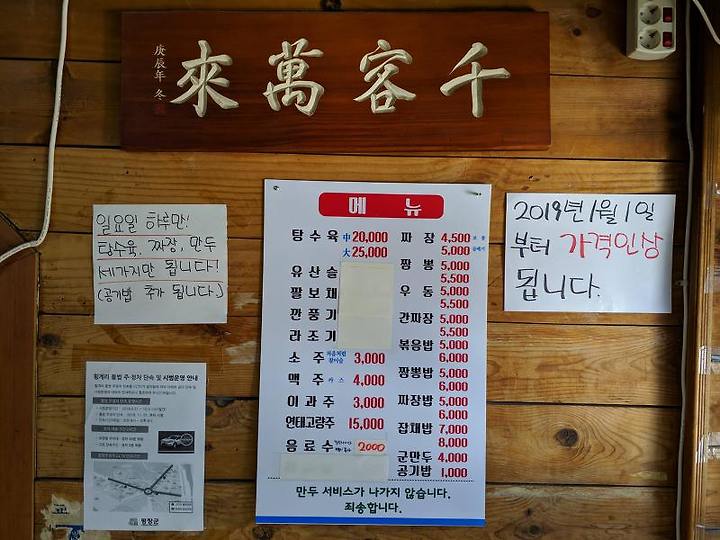 千客萬來
庚辰年 冬
일요일 하루만!
탕수육, 짜장, 만두
세가지만 됩니다!
(공기밥 추가 됩니다.)
메 뉴
탕수육 中 20,000
大 25,000
유산슬
팔보채
깐풍기
라조기
소주 처음처럼 참이슬 3,000
맥주 카스 4,000
이과주 3,000
연태고량주 15,000
음료수 2000
짜장 4,500
5,000
짬뽕 5,000
5,500
우동 5,000
5,500
간짜장 5,000
5,500
볶음밥 5,000
6,000
짬뽕밥 5,000
6,000
짜장밥 5,000
6,000
잡채밥 7,000
8,000
군만두 4,000
공기밥 1,000
만두 서비스가 나가지 않습니다.
죄송합니다.
2019년 1월 1일
부터 가격인상
됩니다.
횡계리 불법 주·정차 단속 및 시범운영 안내
평창군